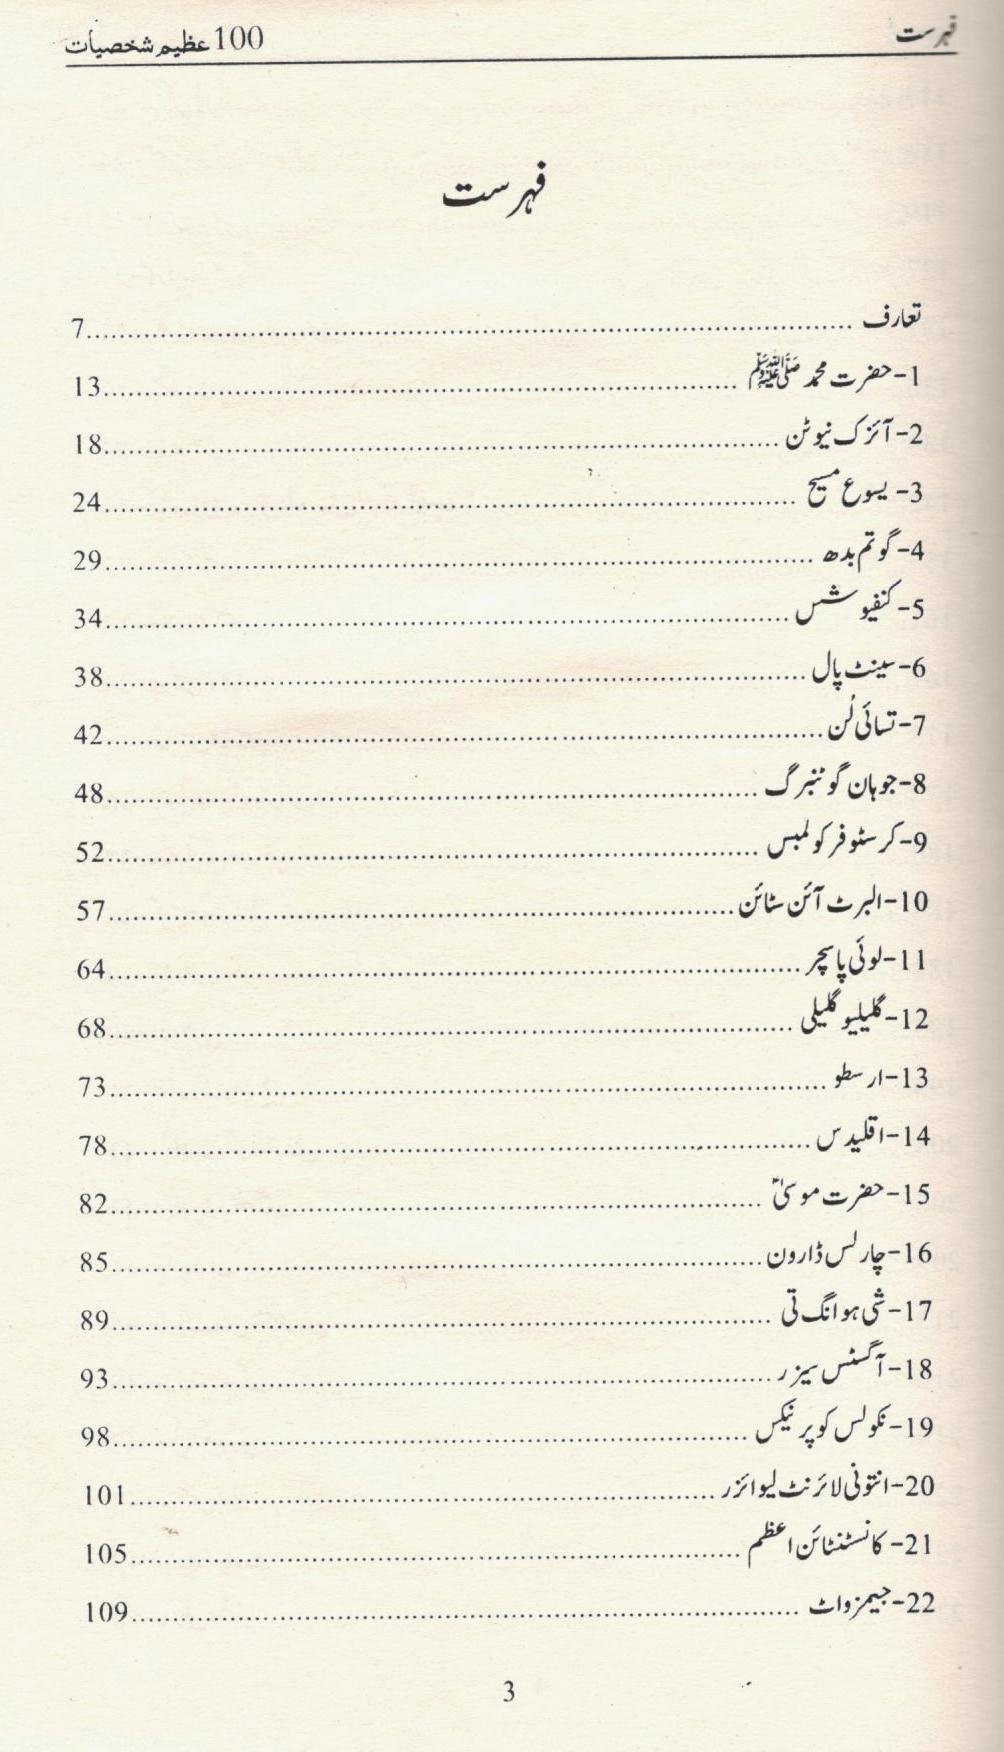 فہرست
100 عظیم شخصیات
فہرست
تعارف ........ 7
1-حضرت محمد ﷺ ........ 13
2-آئزک نیوٹن ........ 18
3-یسوع مسیح ........ 24
4-گوتم بدھ ........ 29
5-کنفیوشس ........ 34
6-سینٹ پال ........ 38
7-تسائی لُن ........ 42
8-جوہان گوٹنبرگ ........ 48
9-کرسٹوفر کولمبس ........ 52
10-البرٹ آئن سٹائن ........ 57
11-لوئی پاسچر ........ 64
12-گلیلیو گلیلی ........ 68
13-ارسطو ........ 73
14-اقلیدس ........ 78
15-حضرت موسیٰؑ ........ 82
16-چارلس ڈارون ........ 85
17-شی ہوانگ تی ........ 89
18-آگسٹس سیزر ........ 93
19-نکولس کوپرنیکس ........ 98
20-انتونی لائرنٹ لیوائزر ........ 101
21-کانسٹنٹائن اعظم ........ 105
22-جیمز واٹ ........ 109
3